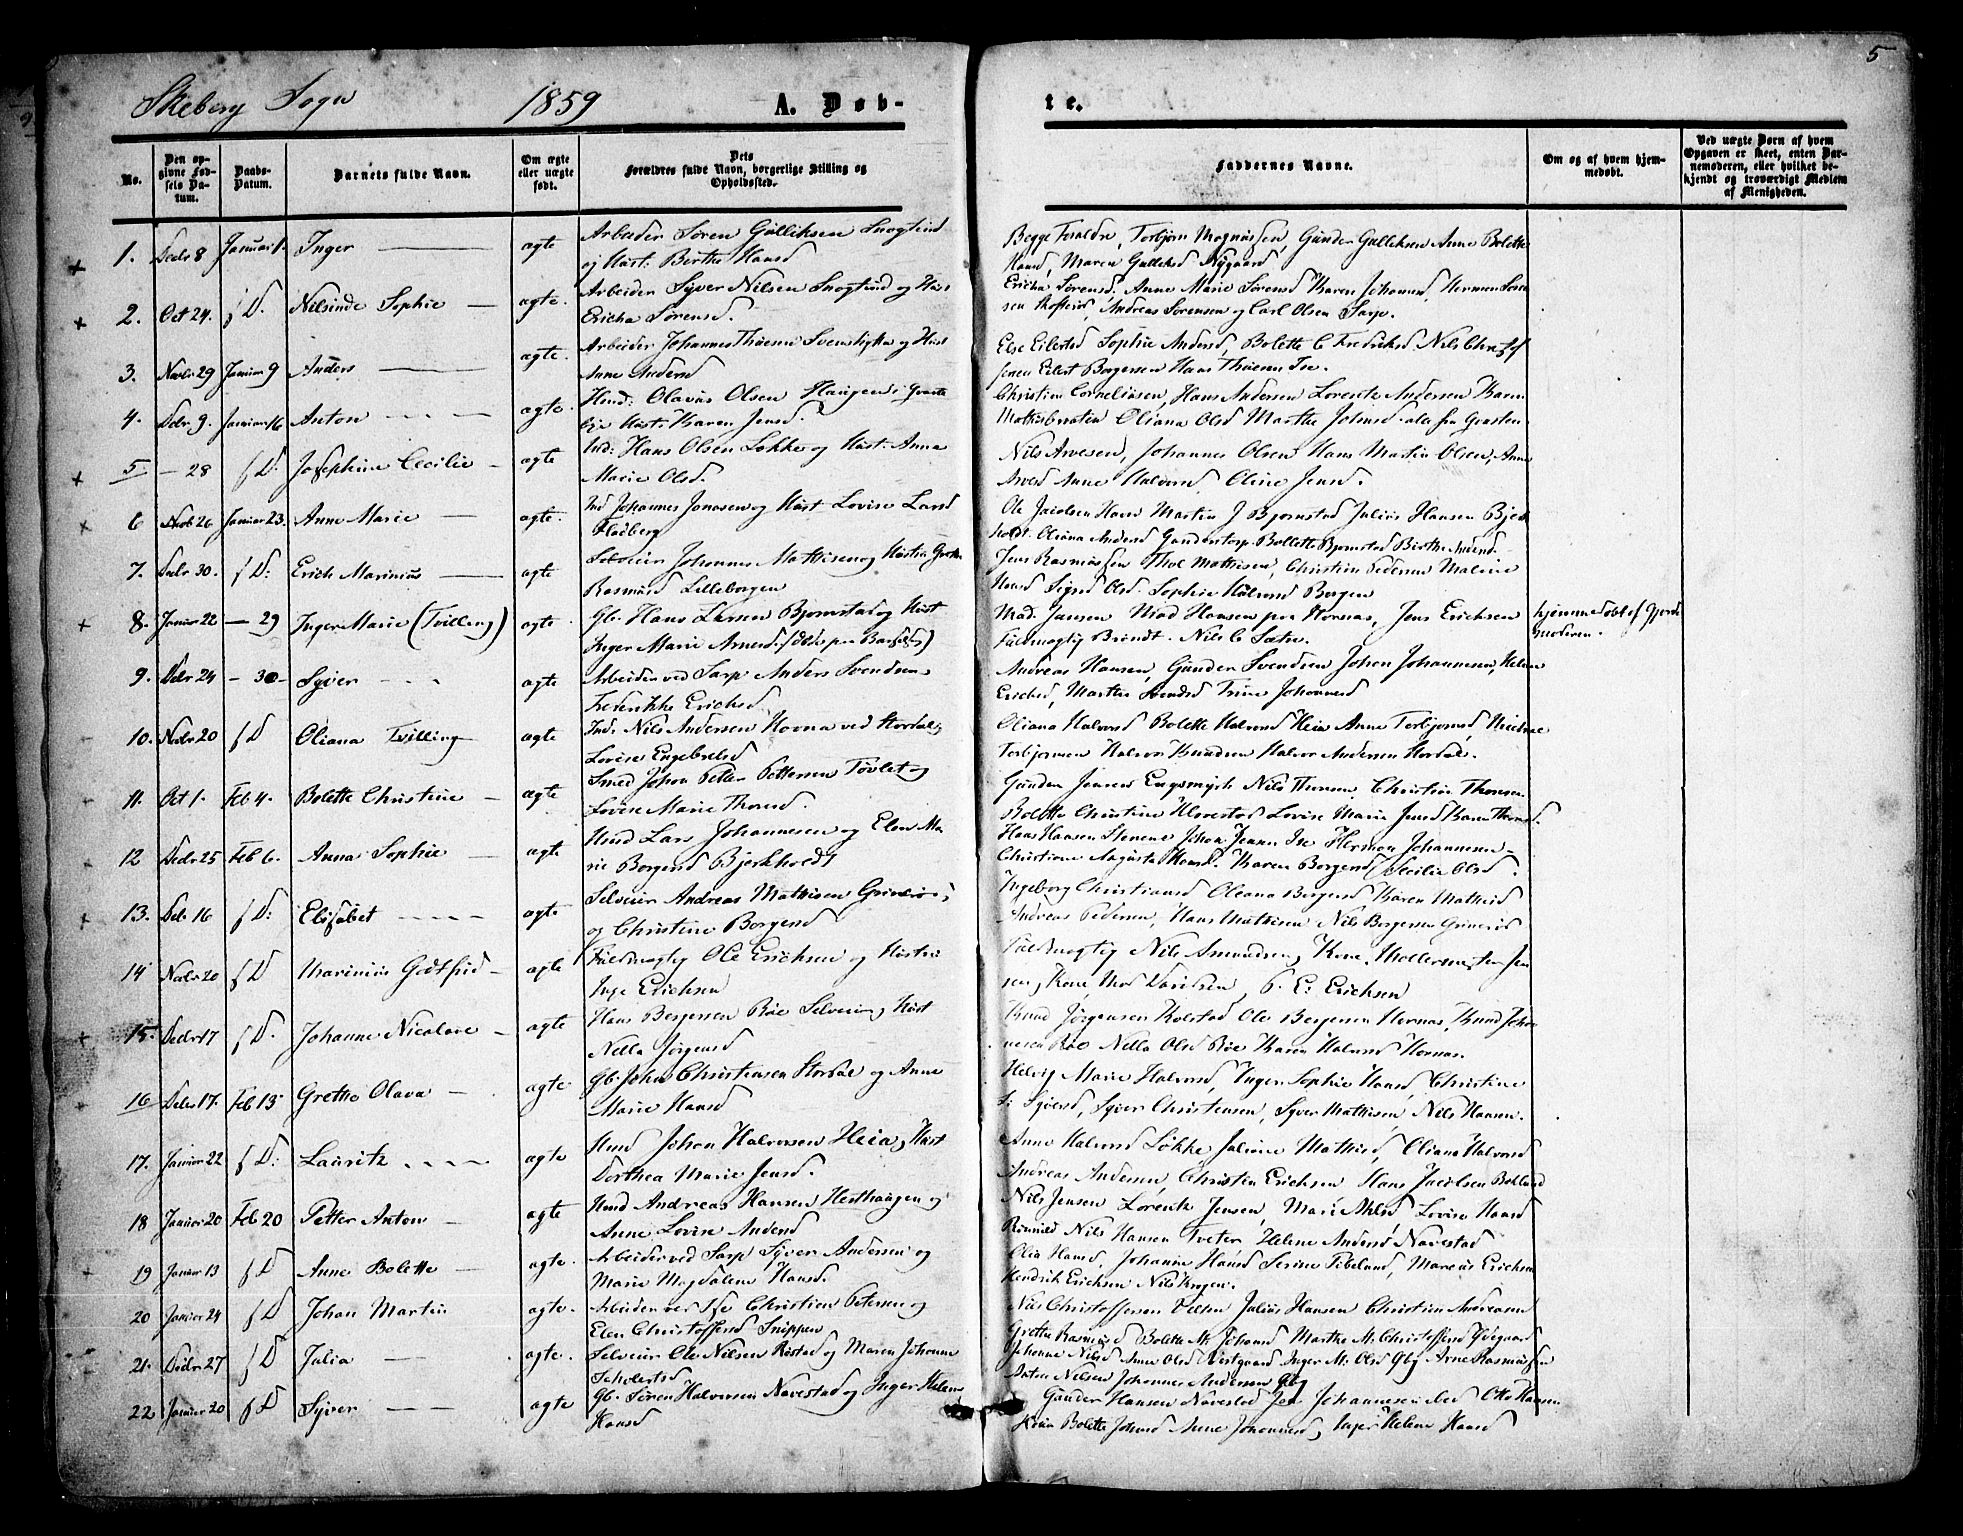 5
Skeberg Sogn 1859 A. Døb- te.
No.
Den op-
givne Fød-
sels Da-
tum.
Daabs-
Datum.
Barnets fulde Navn.
Om ægte
eller uægte
født.
Dets
Forældres fulde Navn, borgerlige Stilling og
Opholdssted.
Faddernes Navne.
Om og af hvem hjem-
medøbt.
Ved uægte Børn af hvem
Opgaven er skeet, enten Bar-
nemoderen, eller hvilket be-
kjendt og troværdigt Medlem
af Menigheden.
1. Decbr 8 Januar 1. Inger ægte Arbeider Søren Gulliksen
og Hust: Berthe Hansd
Begge Foraldre, Torbjørn Magnussen, Gunder Gulliksen Anne Bolette
Hansd, Maren Gulliksd Nygaard
2. Oct 24. f D. Nilsinde Sophie ægte. Arbeider Syver Nilsen og Hust
Ericka Sørensd.
Ericka Sørensd. Anne Marie Sørensd Karen Johannsd, Herman Søren
sen, Andreas Sørensen og Carl Olsen Sarp.
3. Novbr 29 Januar 9 Anders ægte. Arbeider Johannes Thuesen og Hust
Anne Andersd
Else Eilertsd Sophie Andersd, Bolette C Fredriksd. Nils Christof
fersen Eilert Borgersen Hans Thuesen Ise.
4. Decbr 9. Januar 16 Anton ægte. Husmd: Olavus Olsen Haugen i
Hust: Karen Jensd.
Christian Corneliusen, Hans Andersen Lorentz Andersen Karen
Oliana Olsd Marthe Johnsd alle fra
5. — 28 f D: Josephine Cecilie ægte Ind: Hans Olsen Løkke og Hust: Anne
Marie Olsd.
Nils Arvesen, Johannes Olsen Hans Martin Olsen, Anne
Arvesd Anne Halvorsd. Oline Jensd.
6 Novb 26 Januar 23. Anne Marie ægte. Ind Johannes Jonasen og Hust Lovise Larsd
Fladberg
Ole Jacobsen Hans Martin J Bjørnstad Julius Hansen Bjerk
holdt. Oliana Andersd Gunderstorp. Bollette Bjørnstad Birthe Andersd
7. Decbr 30. f D: Erich Marinius ægte Selveier Johannes Mathisen og Hustru Grethe
Rasmusd Lilleborgen
Jens Rasmussen Thol Mathisen, Christian Pedersen Malene
Hansd Signe Olsd. Sophie Halvorsd Borgen
8. Januar 22 — 29 Inger Marie (Tvilling) ægte. Gb. Hans Larsen Bjørnstad og Hust
Inger Marie Arnesd.
Mad. Jansen Mad Hansen paa Hornæs, Jens Erichsen
Fuldmægtig Brandt. Nils C. Sætre.
hjemmedøbt af Jorde
moderen.
9. Decbr 24 — 30 — Syver ægte Arbeider ved Sarp Anders Svendsen
Frederikke Erichsd,
Andreas Hansen, Gunder Svendsen Johan Johannesen, Helene
Erichsd, Marthe Svendsd Trine Johannesd
10. Novbr 20 f D Oliana Tvilling ægte Ind: Nils Andersen Hovna ved Stordal,
Lovise Engebretsd
Oliana Halvorsd Bolette Halvorsd Heia Anne Torbjørnsd, Michael
Torbjørnsen Halvor Knudsen Halvor Andersen Stordal.
11. Oct 1. Feb 4. Bolette Christine ægte Smed Johan Petter Pettersen Tovlet og
Lovise Marie Thoresd.
Gunder Jensen Engsmyhr Nils Thoresen, Christian Thoresen
Bolette Christine Ulvestad Lovise Marie Jensd Karen Thoresd.
12 Decbr 25 Feb 6. Anna Sophie ægte Husmd Lars Johannesen og Elen Ma-
rie Borgersd Bjerkholdt
Hans Hansen Stenene Johan Jensen Ise Herman Johannesen
Christiane Augusta Hansd. Karen Borgersd Cecilia Olsd.
13. Deb 16 f D: Elisabet ægte Selveier Andreas Mathisen
og Christine Borgersd
Ingeborg Christiansd Oleana Borgersd Karen Mathisd
Andreas Pedersen, Hans Mathisen Nils Borgersen
14 Novbr 20 f D Marinius Godtfred ægte Fuldmægtig Ole Erichsen og Hustru
Inge Erichsen
Fuldmægtig Nils Amundsen, Kone, Møllermester Jen
sen, Kone, Mad Davidsen, P. E: Erichsen
15. Decbr 17 f D. Johanne Nicoline ægte Hans Borgersen Röe Selveier og Hust
Nella Jørgensd
Knud Jørgensen Kolstad Ole Borgersen Hornæs, Knud Johan
nesen Röe Nella Olsd Röe Karen Halvorsd Hornæs.
16 Debr 17. Feb 13 Grethe Olava ægte. Gb. John Christensen Stordal og Anne
Marie Hansd
Helvig Marie Halvorsd, Inger Sophie Hansd, Christine
Syversd, Syver Christensen, Syver Mathisen, Nils Hansen.
17. Januar 22 f D: Lauritz ægte Husmd Johan Halvorsen Heia, Hust
Dorthea Marie Jensd.
Anne Halvorsd Løkke Juliane Mathisd, Oliana Halvorsd
Andreas Andersen, Christian Erichsen Hans Jacobsen
18 Januar 20 Feb 20 Petter Anton ægte Husmd Andreas Hansen Hesthaugen og
Anne Lovise Andersd
Nils Jensen Lorentz Jensen, Lovise Hansd
Nils Hansen Tveter Helene Andersd Navestad
19 Januar 13 f D Anne Bolette ægte. Arbeider ved Sarp Syver Andersen og
Marie Magdalene Hansd.
Olia Hansd, Johanne Hansd Serine, Marcus Erichsen
Hendrik Erichsen Nils
20 Januar 24 f D Johan Martin ægte. Arbeider ved Ise Christian Petersen og
Elen Christoffersd Snippen
Nils Christoffersen Julius Hansen Christian Andreasen
Grethe Rasmusd Bolette M. Johansd Marthe M. Christoffersd
21. Decbr 27 f D Julia ægte. Selveier Ole Nilsen Röstad og Maren Johanne
Johanne Nilsd Anne Olsd Vestgaard Inger M. Olsd Gby Arne Rasmussen
Anton Nilsen Johannes Andersen Gby
22 Januar 20 f D Syver ægte Gb. Søren Halvorsen Navestad og Inger Helene
Hansd
Gunder Hansen Navestad Johannesen Otto Hansen
Heia Bolette Johnsd Anne Johannesd, Inger Helene Hansd